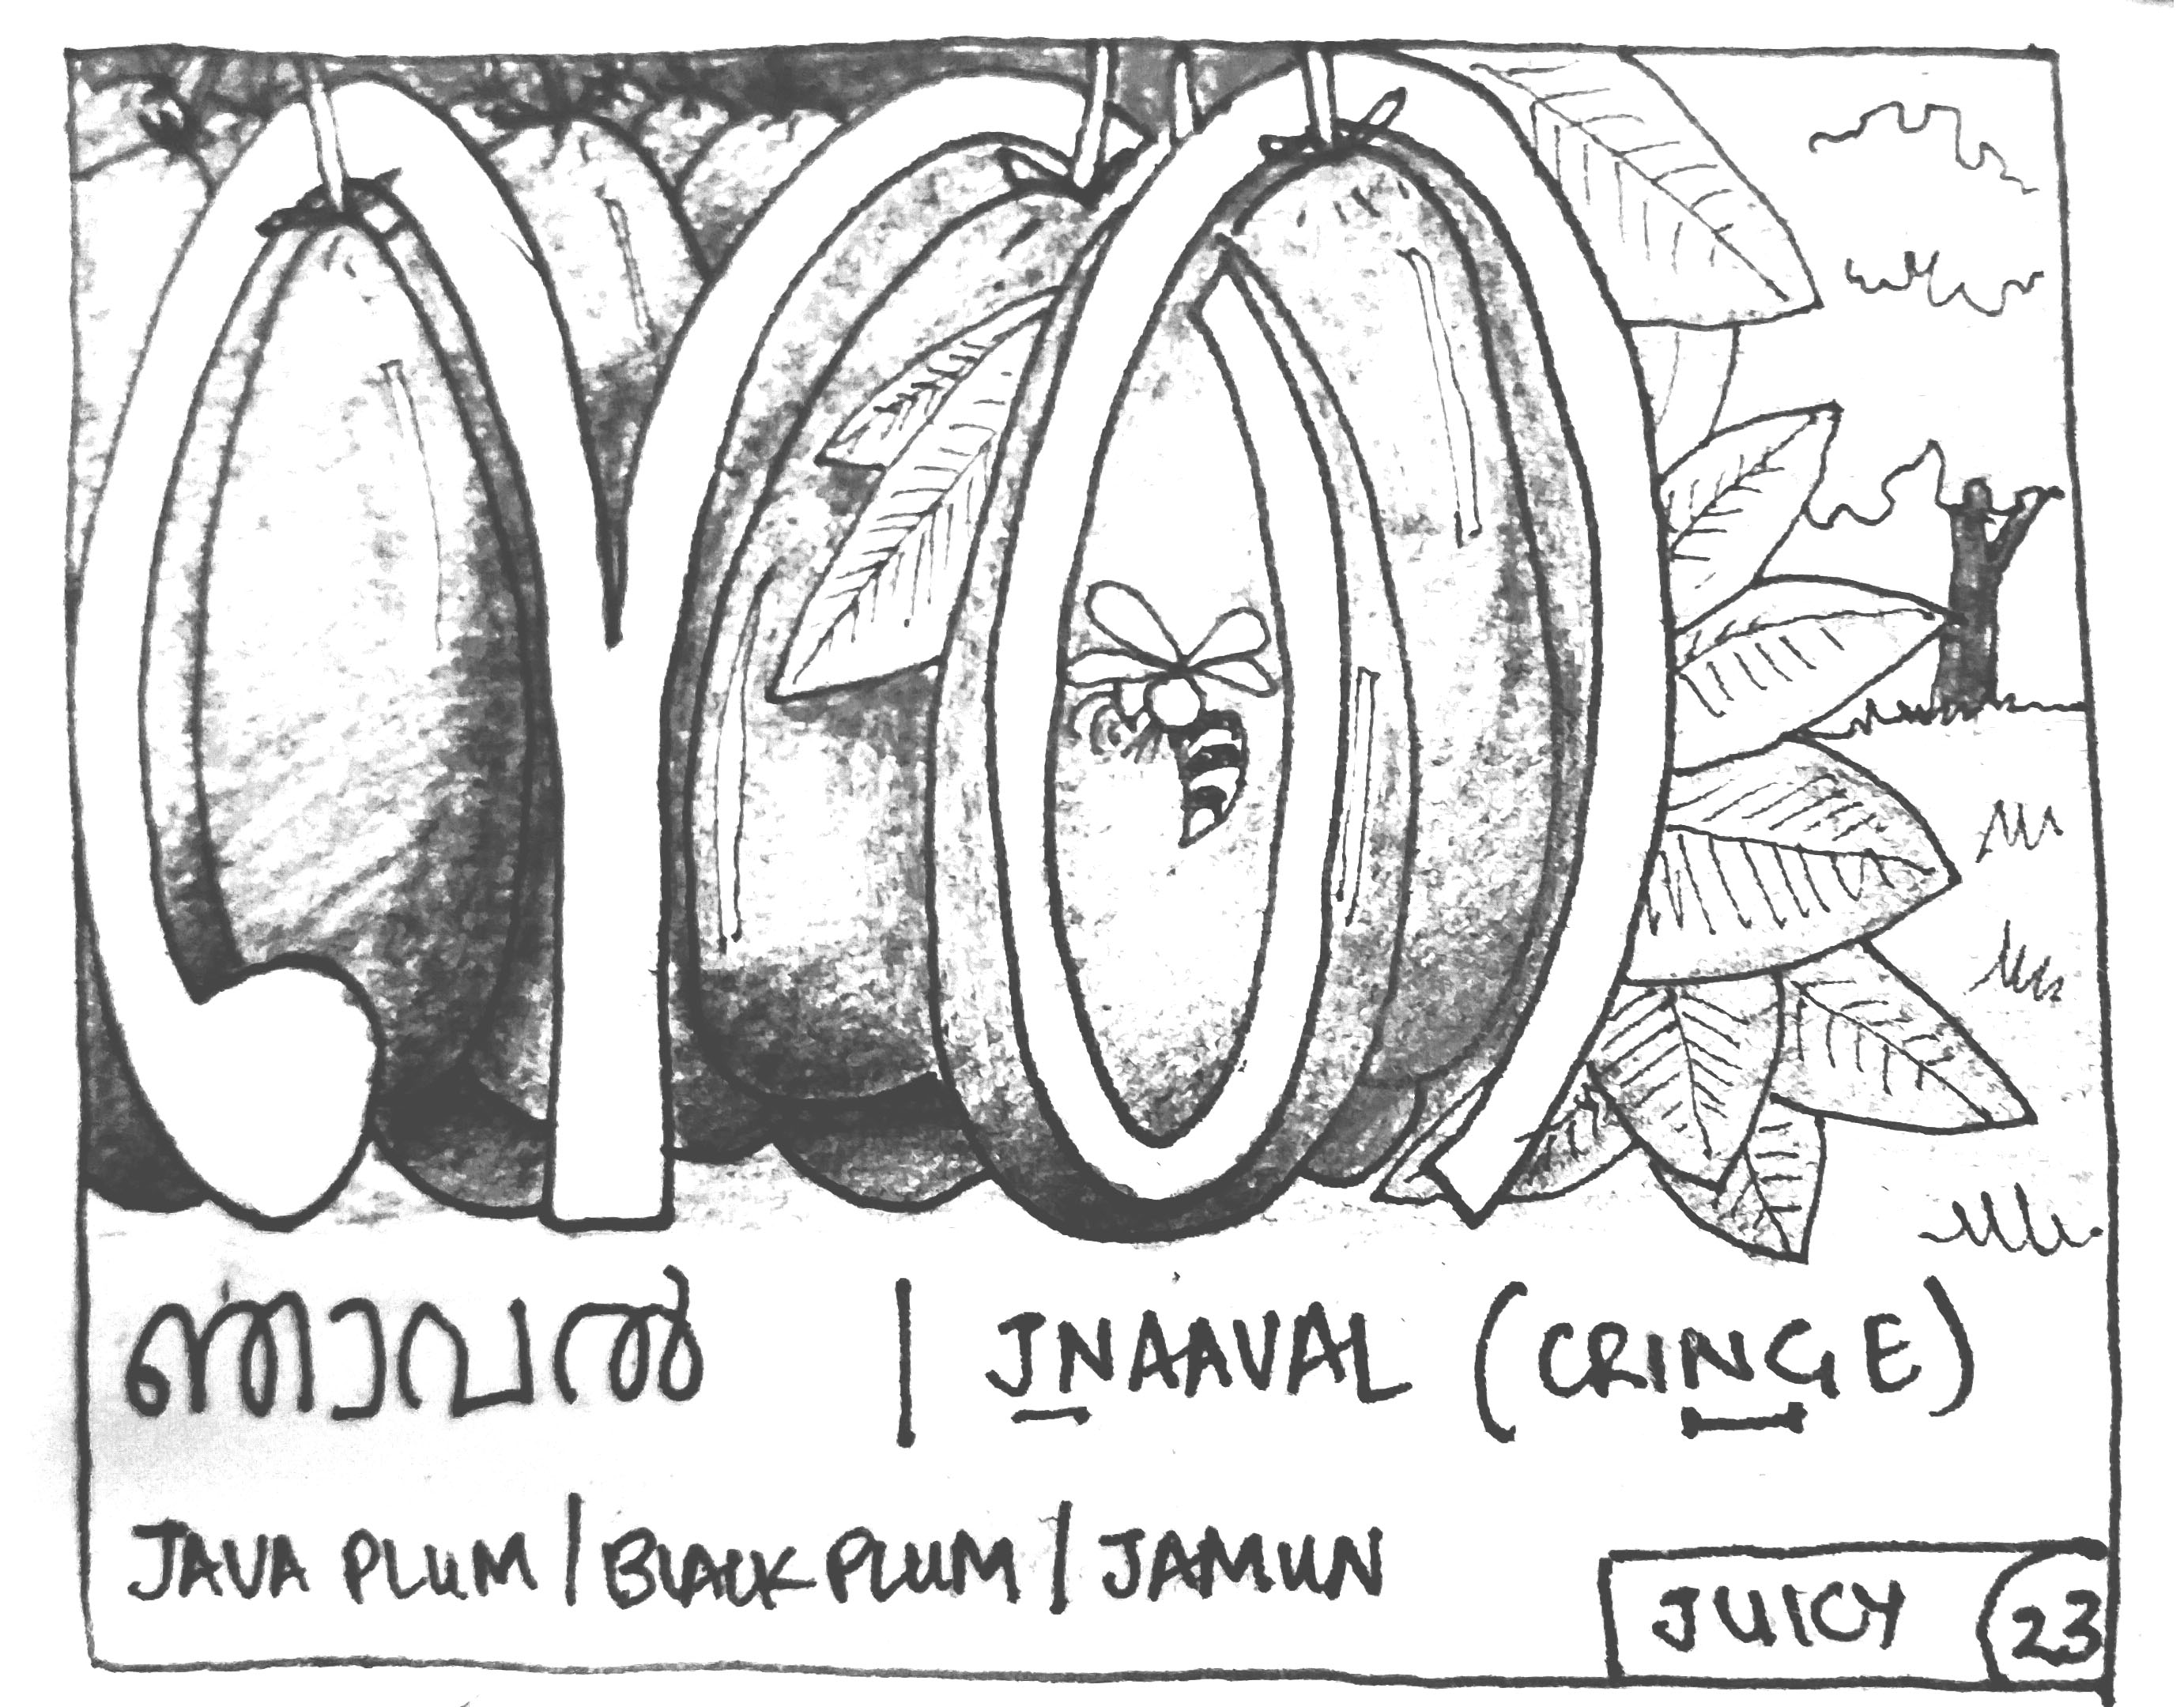 ഞ
ഞാവൽ | JNAAVAL (CRINGE)
JAVA PLUM / BLACK PLUM / JAMUN
JUICY 23